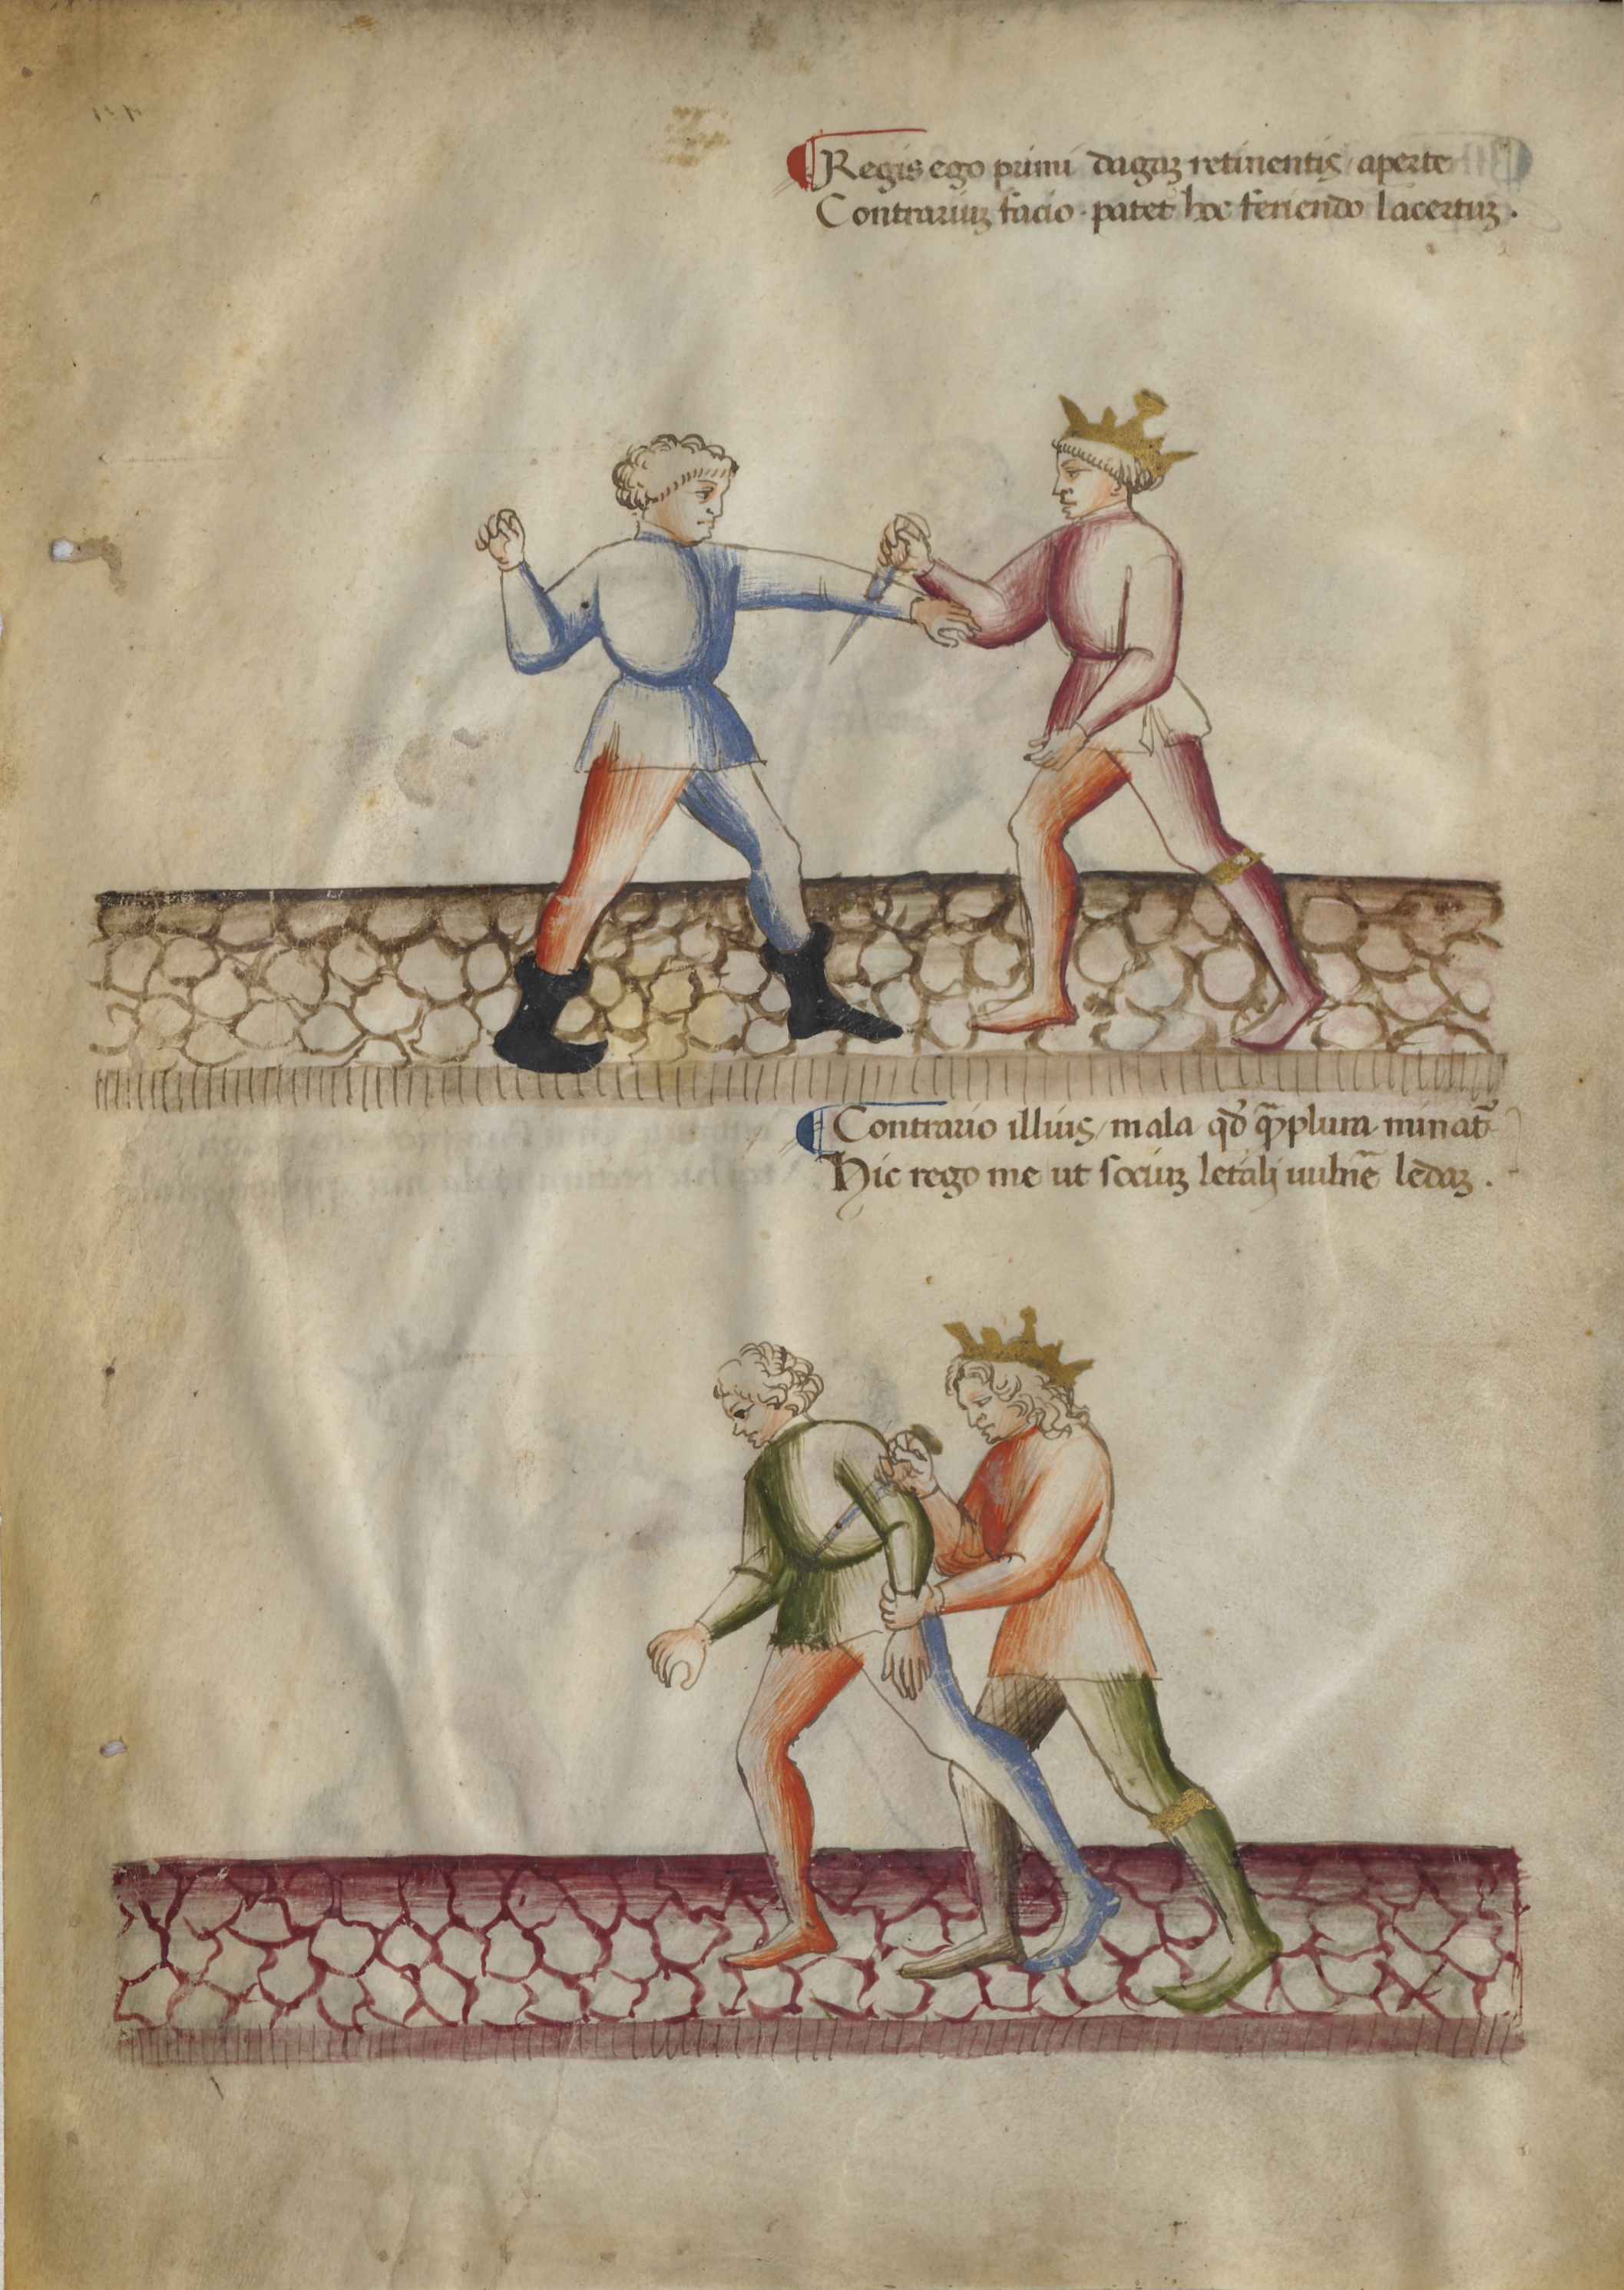 Regis ego primi dagaʒ retinentis / aperte
Contrariuʒ facio · patet hoc feriendo lacertuʒ ·
Contrario illius / mala qđ q̃plura minat᷑
Hic rego me ut sociuʒ letalj uulne᷑ ledaʒ ·